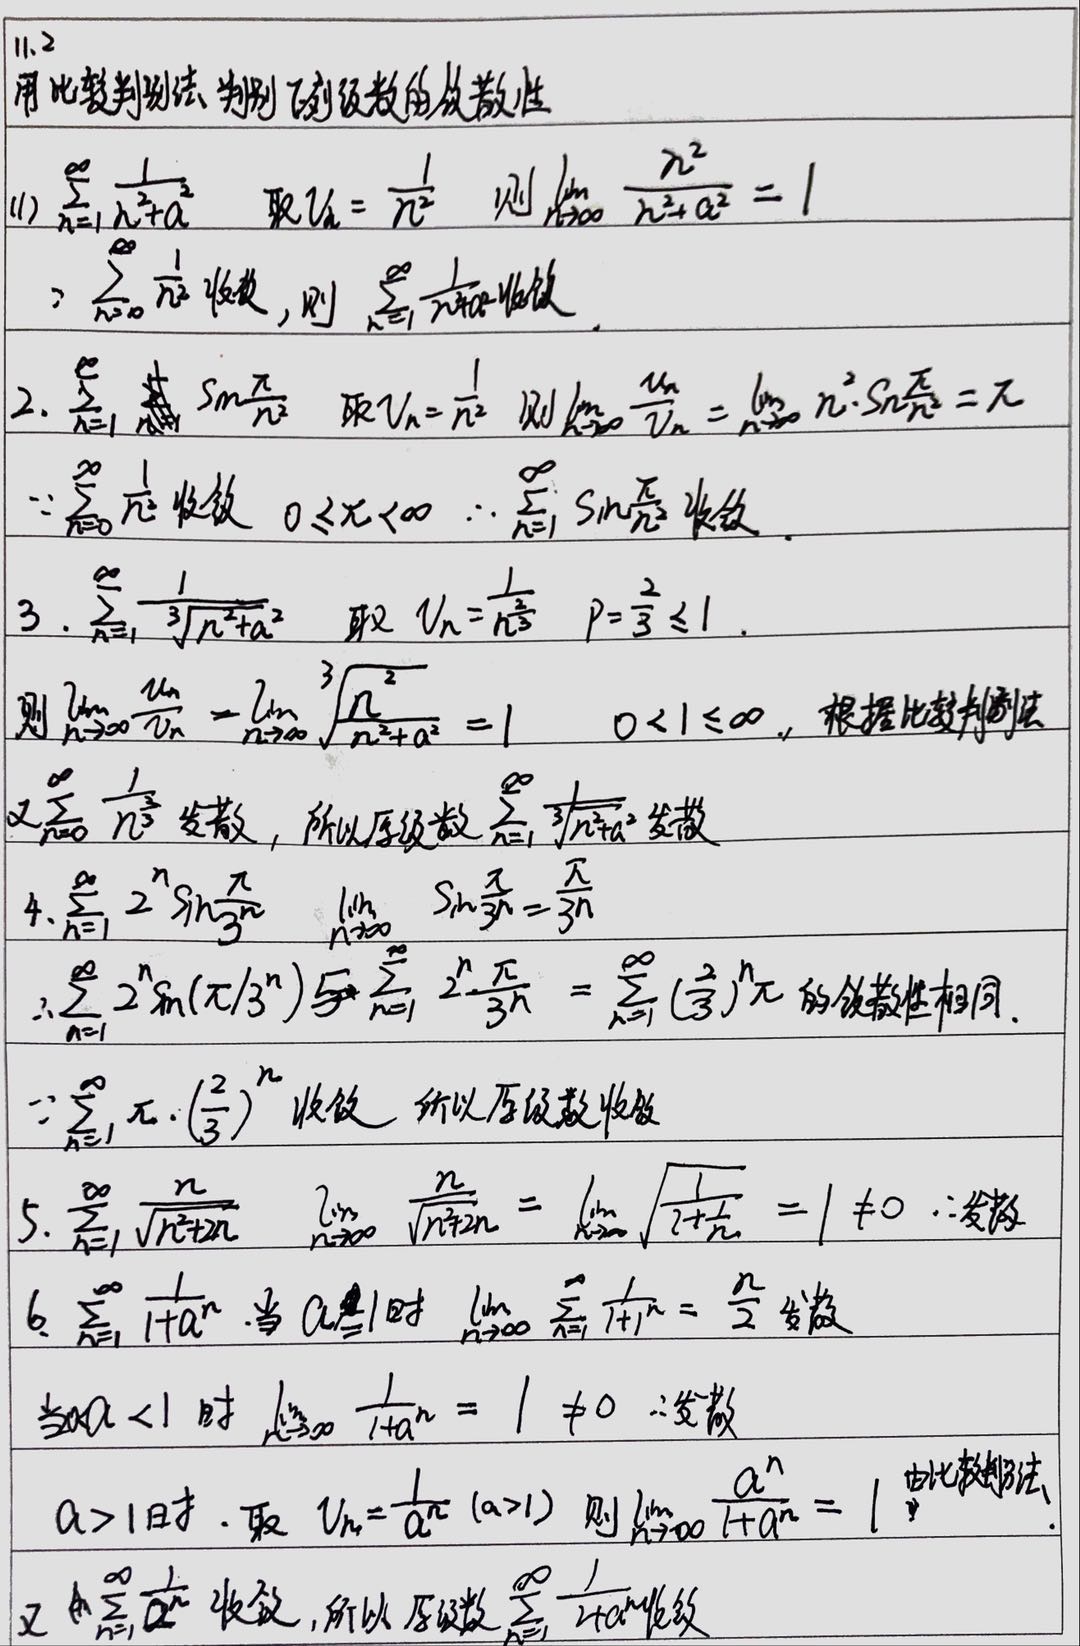 11.2
用比较判别法判别下列级数的敛散性
(1) ∑_{n=1}^{∞} 1/(n²+a²) 取Vn = 1/n² 则 lim_{n→∞} n²/(n²+a²) = 1
∵ ∑_{n=0}^{∞} 1/n² 收敛, 则 ∑_{n=1}^{∞} 1/(n²+a²) 收敛.
2. ∑_{n=1}^{∞} Sin π/n² 取Vn = 1/n² 则 lim_{n→∞} un/Vn = lim_{n→∞} n²·Sin π/n² = π
∵ ∑_{n=0}^{∞} 1/n² 收敛 0≤π<∞ ∴ ∑_{n=1}^{∞} Sin π/n² 收敛.
3. ∑_{n=1}^{∞} 1/∛(n²+a²) 取 Vn = 1/n^{2/3} P = 2/3 ≤ 1.
则 lim_{n→∞} un/Vn = lim_{n→∞} ∛(n²/(n²+a²)) = 1 0<1≤∞, 根据比较判别法
又∑_{n=0}^{∞} 1/n^{2/3} 发散, 所以原级数 ∑_{n=1}^{∞} 1/∛(n²+a²) 发散
4. ∑_{n=1}^{∞} 2ⁿ Sin π/3ⁿ lim_{n→∞} Sin π/3ⁿ = π/3ⁿ
∴ ∑_{n=1}^{∞} 2ⁿ Sin(π/3ⁿ) 与 ∑_{n=1}^{∞} 2ⁿ·π/3ⁿ = ∑_{n=1}^{∞} (2/3)ⁿπ 的敛散性相同.
∵ ∑_{n=1}^{∞} π·(2/3)ⁿ 收敛 所以原级数收敛
5. ∑_{n=1}^{∞} n/√(n²+2n) lim_{n→∞} n/√(n²+2n) = lim_{n→∞} √(1/(1+1/n)) = 1 ≠ 0 ∴发散
6. ∑_{n=1}^{∞} 1/(1+aⁿ). 当 a=1时 lim_{n→∞} ∑_{n=1}^{∞} 1/(1+1ⁿ) = n/2 发散
当a<1 时 lim_{n→∞} 1/(1+aⁿ) = 1 ≠ 0 ∴发散
a>1时. 取 Vn = 1/aⁿ (a>1) 则 lim_{n→∞} aⁿ/(1+aⁿ) = 1, 由比较判别法.
又 ∑_{n=1}^{∞} 1/aⁿ 收敛, 所以原级数 ∑_{n=1}^{∞} 1/(1+aⁿ) 收敛